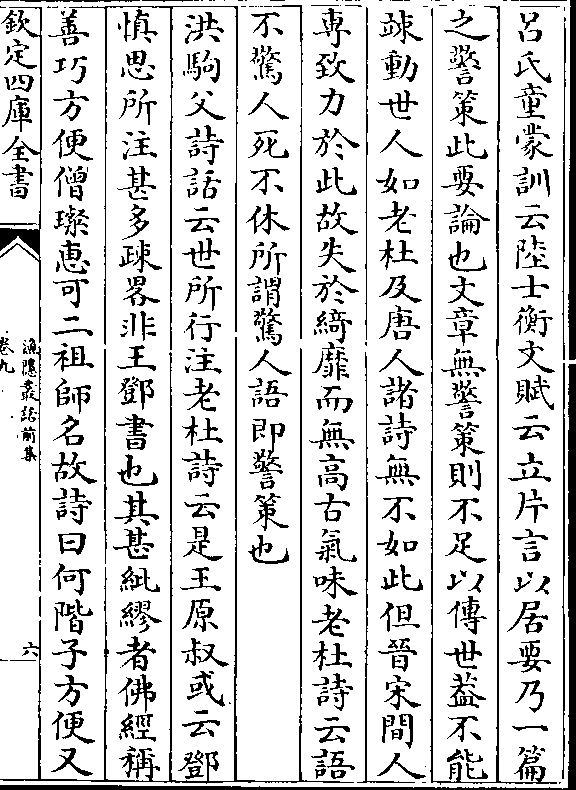 呂氏童蒙訓云陸士衡文賦云立片言以居要乃一篇
之警策此要論也文章無警策則不足以傳世葢不能
竦動世人如老杜及唐人諸詩無不如此但晉宋間人
専致力於此故失於綺靡而無高古氣味老杜詩云語
不驚人死不休所謂驚人語即警策也
洪駒父詩話云世所行注老杜詩云是王原叔或云鄧
慎思所注甚多疎畧非王鄧書也其甚紕繆者佛經稱
善巧方便僧璨惠可二祖師名故詩曰何階子方便又
欽定四庫全書
漁隱叢話前集
卷九
六